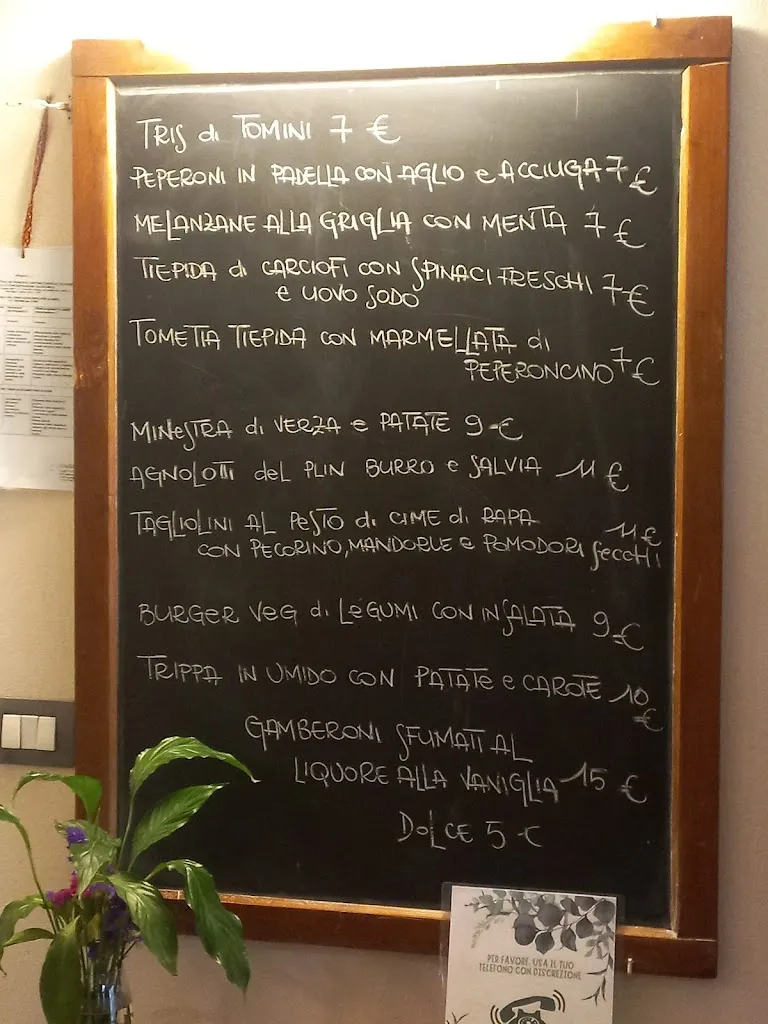 TRIS di TOMINI 7 €
PEPERONI IN PADELLA CON AGLIO e ACCIUGA 7 €
MELANZANE ALLA GRIGLIA CON MENTA 7 €
TIEPIDA di CARCIOFI CON SPINACI FRESCHI 7 €
E UOVO SODO
TOMETTA TIEPIDA CON MARMELLATA di
PEPERONCINO 7 €
MINESTRA di VERZA e PATATE 9 €
AGNOLOTTI del PLIN BURRO e SALVIA 11 €
TAGLIOLINI AL PESTO di CIME di RAPA 11 €
CON PECORINO, MANDORLE e POMODORI SECCHI
BURGER VEG di LEGUMI CON INSALATA 9 €
TRIPPA IN UMIDO CON PATATE e CAROTE 10
€
GAMBERONI SFUMATI AL
LIQUORE ALLA VANIGLIA 15 €
DOLCE 5 €
PER FAVORE, USA IL TUO
TELEFONO CON DISCREZIONE